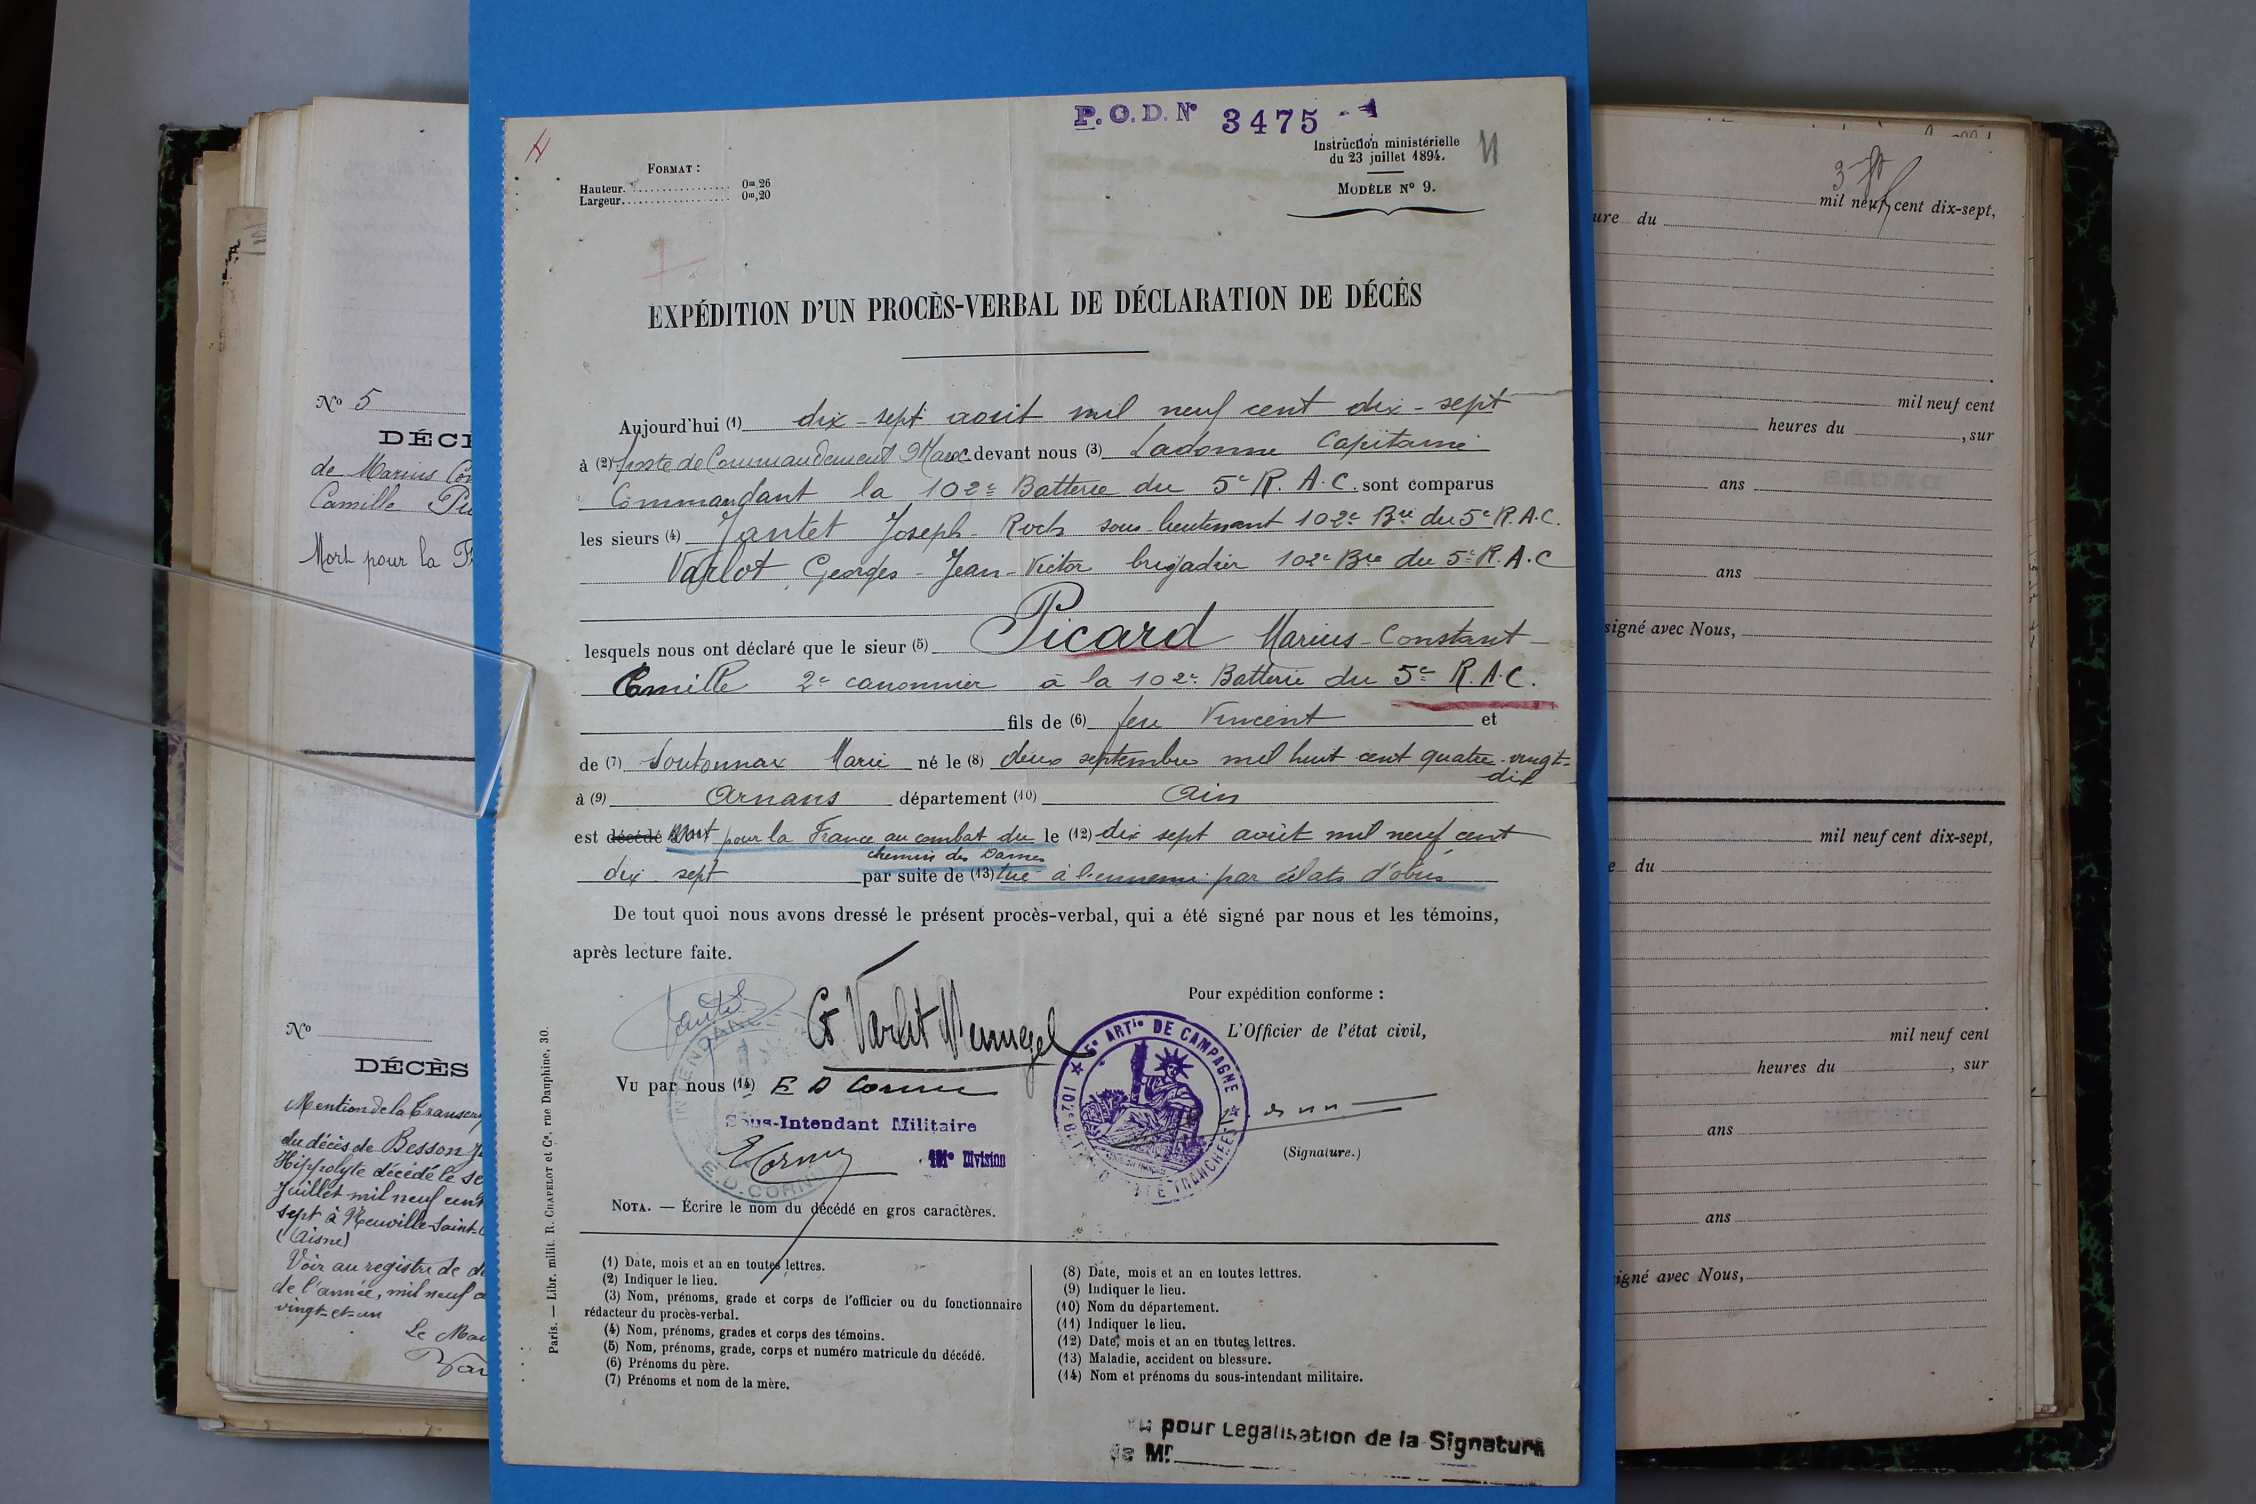 P.O.D. N° 3475
Instruction ministérielle
du 23 juillet 1894.
MODÈLE N° 9.
FORMAT :
Hauteur. 0m,26
Largeur. 0m,20
EXPÉDITION D'UN PROCÈS-VERBAL DE DÉCLARATION DE DÉCÈS
Aujourd'hui (1) dix-sept août mil neuf cent dix-sept
à (2) poste de Commandement devant nous (3) Ladonne Capitaine
Commandant la 102e Batterie du 5e R.A.C. sont comparus
les sieurs (4) Jantet Joseph-Roch sous-lieutenant 102e Bie du 5e R.A.C.
Varlot Georges-Jean-Victor brigadier 102e Bie du 5e R.A.C
lesquels nous ont déclaré que le sieur (5) Picard Marius-Constant-
Camille 2e canonnier à la 102e Batterie du 5e R.A.C.
fils de (6) feu Vincent et
de (7) Soutonnax Marie né le (8) deux septembre mil huit cent quatre-vingt-
dix
à (9) Arnans département (10) Ain
est décédé Mort pour la France au combat du le (12) dix sept août mil neuf cent
chemin des Dames
dix sept par suite de (13) tué à l'ennemi par éclats d'obus
De tout quoi nous avons dressé le présent procès-verbal, qui a été signé par nous et les témoins,
après lecture faite.
Pour expédition conforme :
L'Officier de l'état civil,
Vu par nous (14) E D Cornu
Sous-Intendant Militaire
Division
5e ARTie DE CAMPAGNE
(Signature.)
NOTA. — Écrire le nom du décédé en gros caractères.
(1) Date, mois et an en toutes lettres.
(2) Indiquer le lieu.
(3) Nom, prénoms, grade et corps de l'officier ou du fonctionnaire
rédacteur du procès-verbal.
(4) Nom, prénoms, grades et corps des témoins.
(5) Nom, prénoms, grade, corps et numéro matricule du décédé.
(6) Prénoms du père.
(7) Prénoms et nom de la mère.
(8) Date, mois et an en toutes lettres.
(9) Indiquer le lieu.
(10) Nom du département.
(11) Indiquer le lieu.
(12) Date, mois et an en toutes lettres.
(13) Maladie, accident ou blessure.
(14) Nom et prénoms du sous-intendant militaire.
pour Légalisation de la Signature
de Mr
Paris. — Libr. milit. R. CHAPELOT et Ce, rue Dauphine, 30.
N° 5
DÉC
de Marius
Camille
Mort pour la
N°
DÉCÈS
Mention de la
du décès de Besson
Hippolyte décédé le
Juillet mil neuf cent
sept à Neuville-Saint-
(Aisne)
Voir au registre de
de l'année, mil neuf
vingt-et-un
Le
mil neuf cent dix-sept,
du
mil neuf cent
heures du , sur
ans
ans
signé avec Nous,
mil neuf cent dix-sept,
du
mil neuf cent
heures du , sur
ans
ans
signé avec Nous,